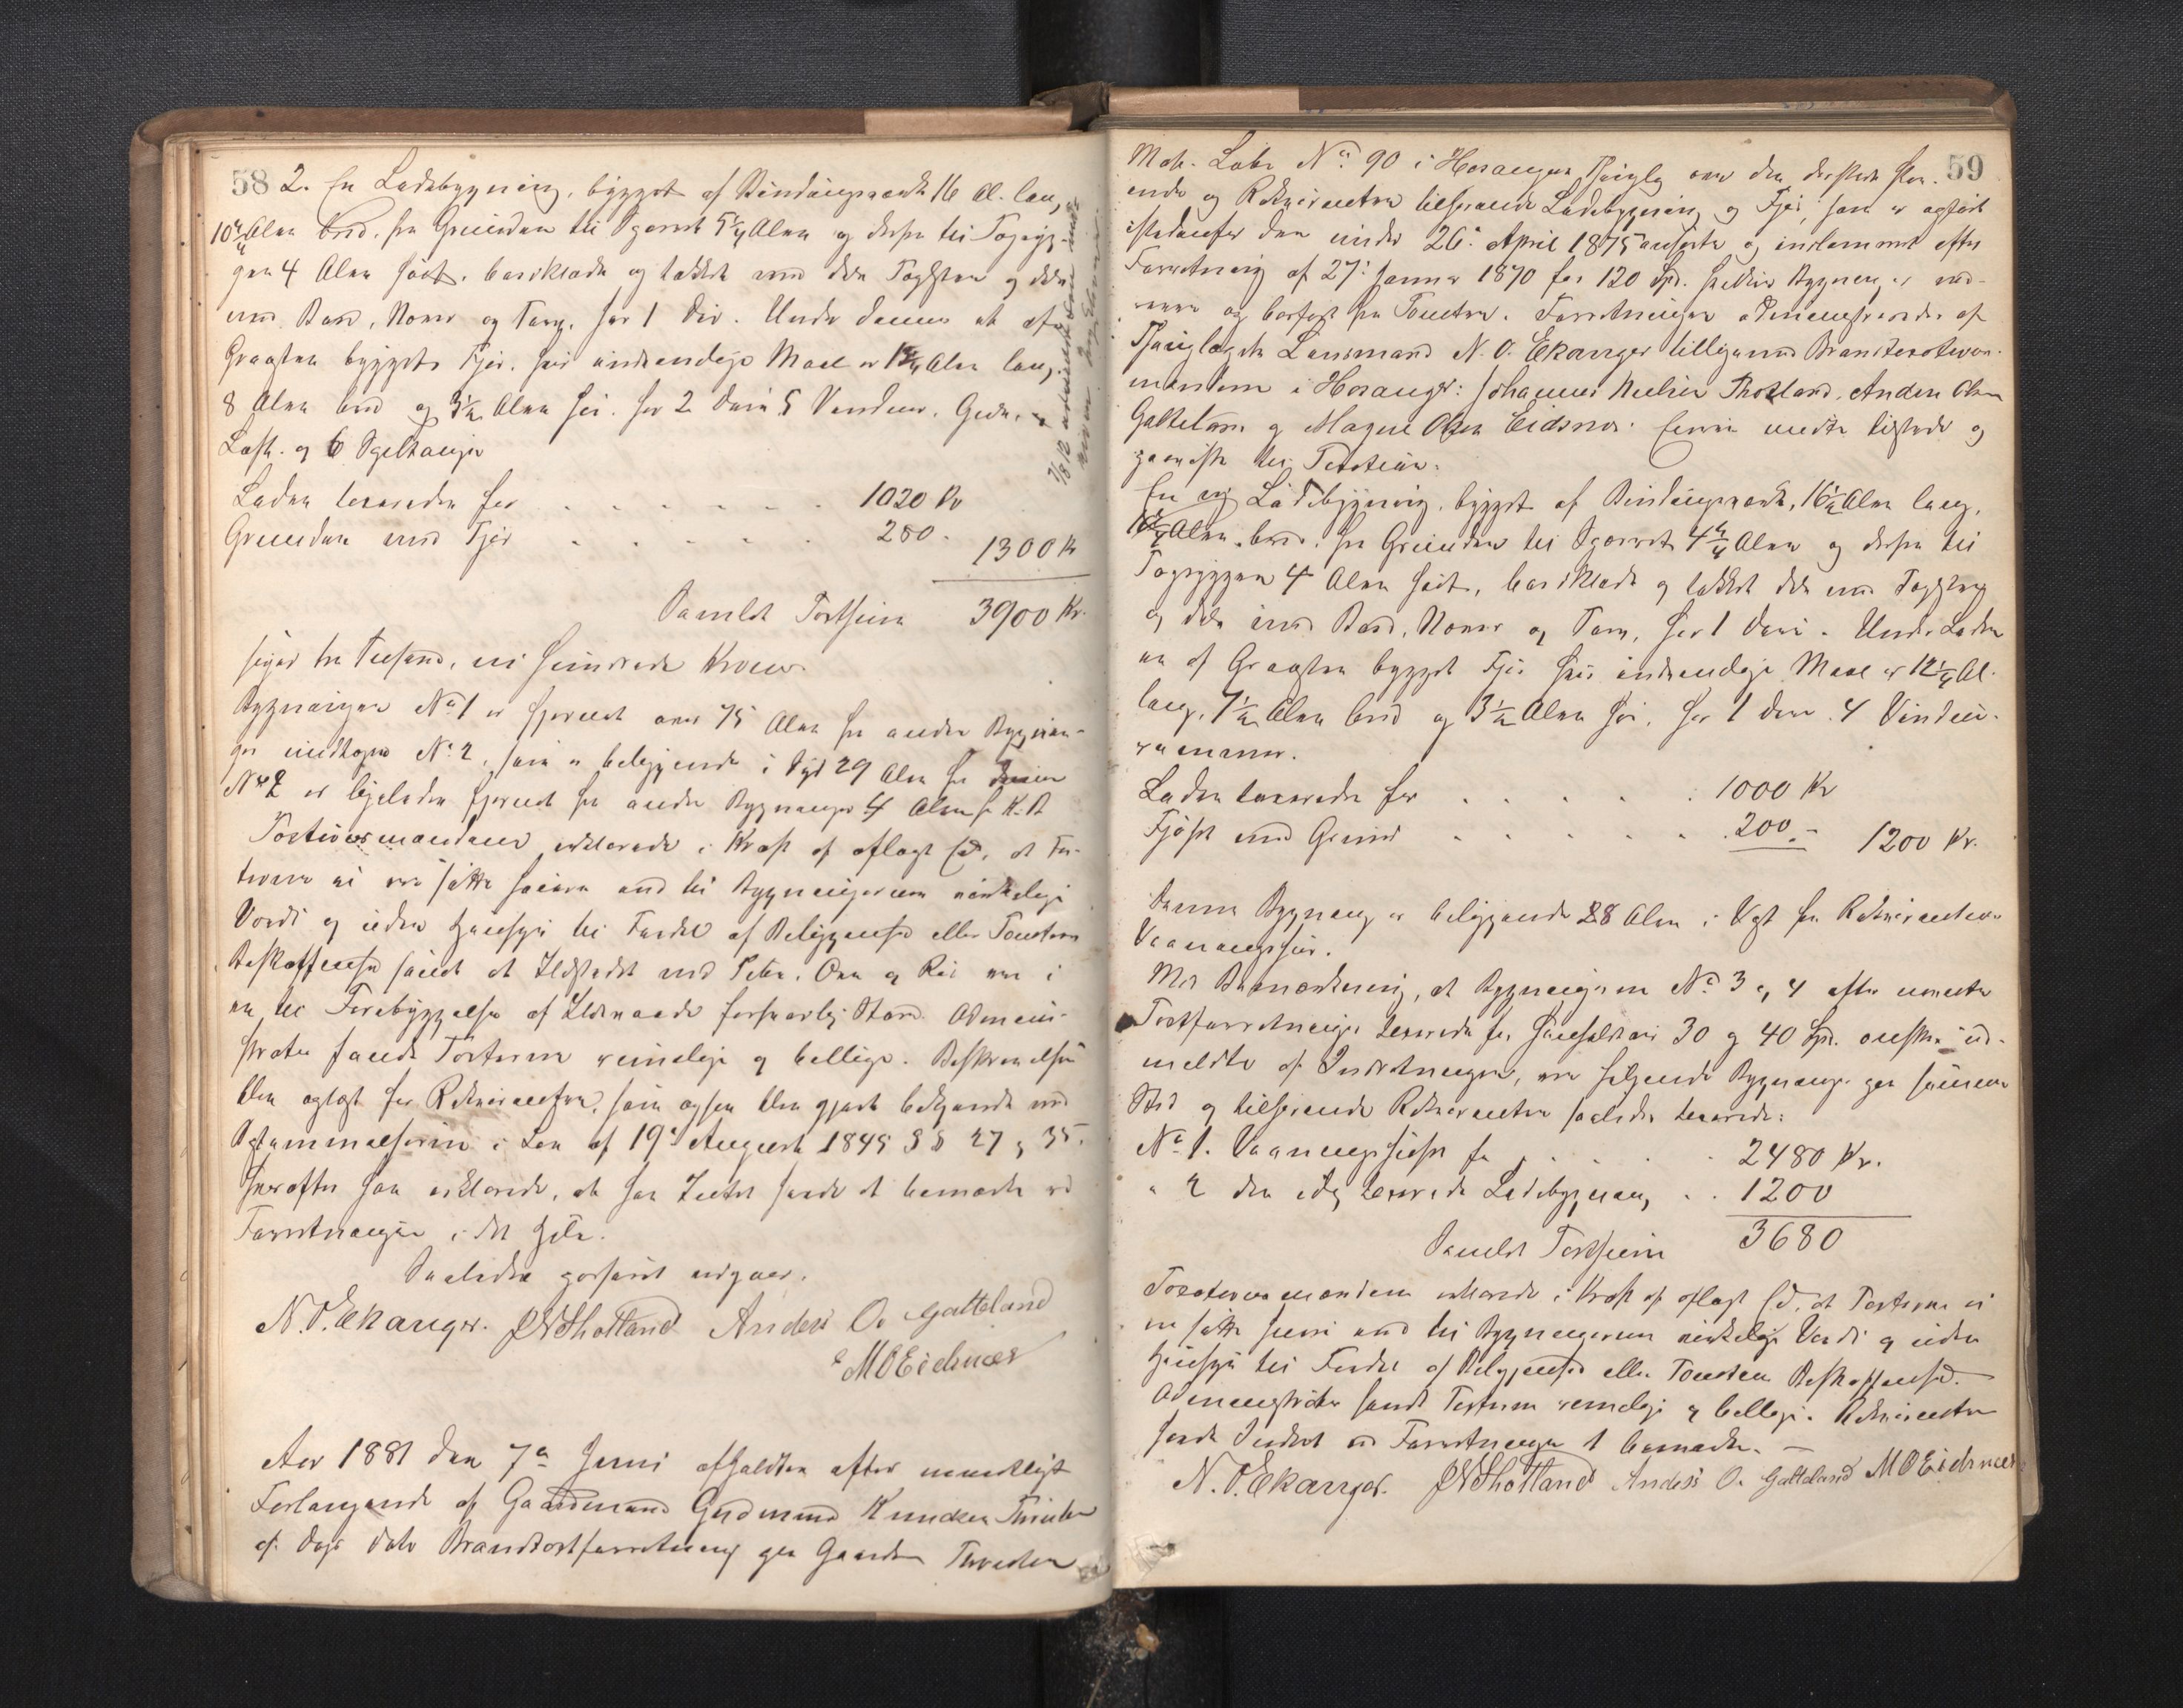 58
2. En Ladebygning, bygget af Bindingsværk 16 Al. lang,
10 2/4 Alen bred, fra Grunden til Sperret 5 1/4 Alen og derfra til Tagryg-
gen 4 Alen høit, bordklædt og tækket med dels Tagsten og dels
med Bord, Never og Torv, har 1 Dør. Under denne et af
Graasten bygget Fjøs, hvis indvendige Maal er 12 1/4 Alen lang,
8 Alen bred og 3 1/2 Alen høi, har 2 Døre 5 Vinduer,
Loft og 6
Laden taxeredes for . . . . . . 1020 Kr
Grunden med Fjøs . . . . . 280. 1300 Kr
Samlet Taxtsum 3900 Kr.
siger tre Tusind, ni hundrede Kroner.
Bygningen No 1 er fjernet over 75 Alen fra andre Bygnin-
ger undtagen No 2, som er beliggende i Syd 29 Alen fra denne
No 2 er ligeledes fjernet fra andre Bygninger 4 Alen
Taxtationsmændene erklærede i Kraft af aflagt Ed, at Tax-
terne ei ere satte høiere end til Bygningernes virkelige
Værdi og uden Hensyn til Fordel af Beliggenhed eller Tomtens
Beskaffenhed samt at Ildstedet med Pibe, Ovn og Rør ere i
en til Forebyggelse af Ildsvaade forsvarlig Stand. Admini-
strator fandt Taxterne rimelige og billige. Beskrivelsen
blev oplæst for Rekvirenten, som ogsaa blev gjort bekjendt med
Bestemmelserne i Lov af 19de August 1845 §§ 27 og 35.
hvorefter han erklærede, at han Intet havde at bemærke ved
Forretningen i det Hele.
Saaledes passeret udgaar.
N. O. Ekanger. JN Thotland Anders O. Gatteland
MOEidsnæs
Aar 1881 den 7de Juni afholdtes efter mundtligt
Forlangende af Gaardmand Gudmund Knudsen
af Dags Dato Brandtaxtforretning paa Gaarden
59
Matr. Løbe No 90 i Hosanger Thinglag over den dersteds staa-
ende og Rekvirenten tilhørende Ladebygning og Fjøs, som er opført
istedenfor den under 26de April 1875 anførte og indlemmet efter
Forretning af 27de Januar 1870 for 120 Spd. hvilken Bygning er ned-
reven og bortført fra Tomten. Forretningen administreredes af
Thinglagets Lensmand N. O. Ekanger tilligemed Brandtaxations-
mændene i Hosanger: Johannes Nielsen Thotland, Anders Olsen
Gatteland og Magne Olsen Eidsnæs. Eieren mødte tilstede og
paaviste til Taxation:
En ny Ladebygning, bygget af Bindingsværk, 16 1/2 Alen lang,
10 1/4 Alen bred, fra Grunden til Sperret 4 3/4 Alen og derfra til
Tagryggen 4 Alen høit, bordklædt og tækket dels med Tagsten
og dels med Bord, Never og Torv, har 1 Dør. Under Laden
en af Graasten bygget Fjøs hvis indvendige Maal er 12 1/4 Al.
lang, 7 1/2 Alen bred og 3 1/2 Alen høi, har 1 Dør, 4 Vindu-
Laden taxeredes for . . . . . . 1000 Kr
Fjøset med Grund . . . . . . 200.- 1200 Kr.
Denne Bygning er beliggende 28 Alen i Vest fra Rekvirentens
Vaaningshus.
Med Bemærkning, at Bygningerne No 3 og 4 efter nævnte
Taxtforretning taxerede for henholdsvis 30 og 40 Spd. ønskes ud-
meldte af Indretningen, ere følgende Bygninger paa samme
Sted og tilhørende Rekvirenten saaledes taxerede:
No 1. Vaaningshuset for . . . . 2480 Kr.
" 2 den idag taxerede Ladebygning . . 1200
Samlet Taxtsum 3680
Taxationsmændene erklærede i Kraft af aflagt Ed, at Taxterne ei
ere satte høiere end til Bygningernes virkelige Værdi og uden
Hensyn til Fordel af Beliggenhed eller Tomtens Beskaffenhed.
Administrator fandt Taxterne rimelige og billige. Rekvirenten
havde Intet ved Forretningen at bemærke. —
N. O. Ekanger. JN Thotland Anders O. Gatteland MOEidsnæs